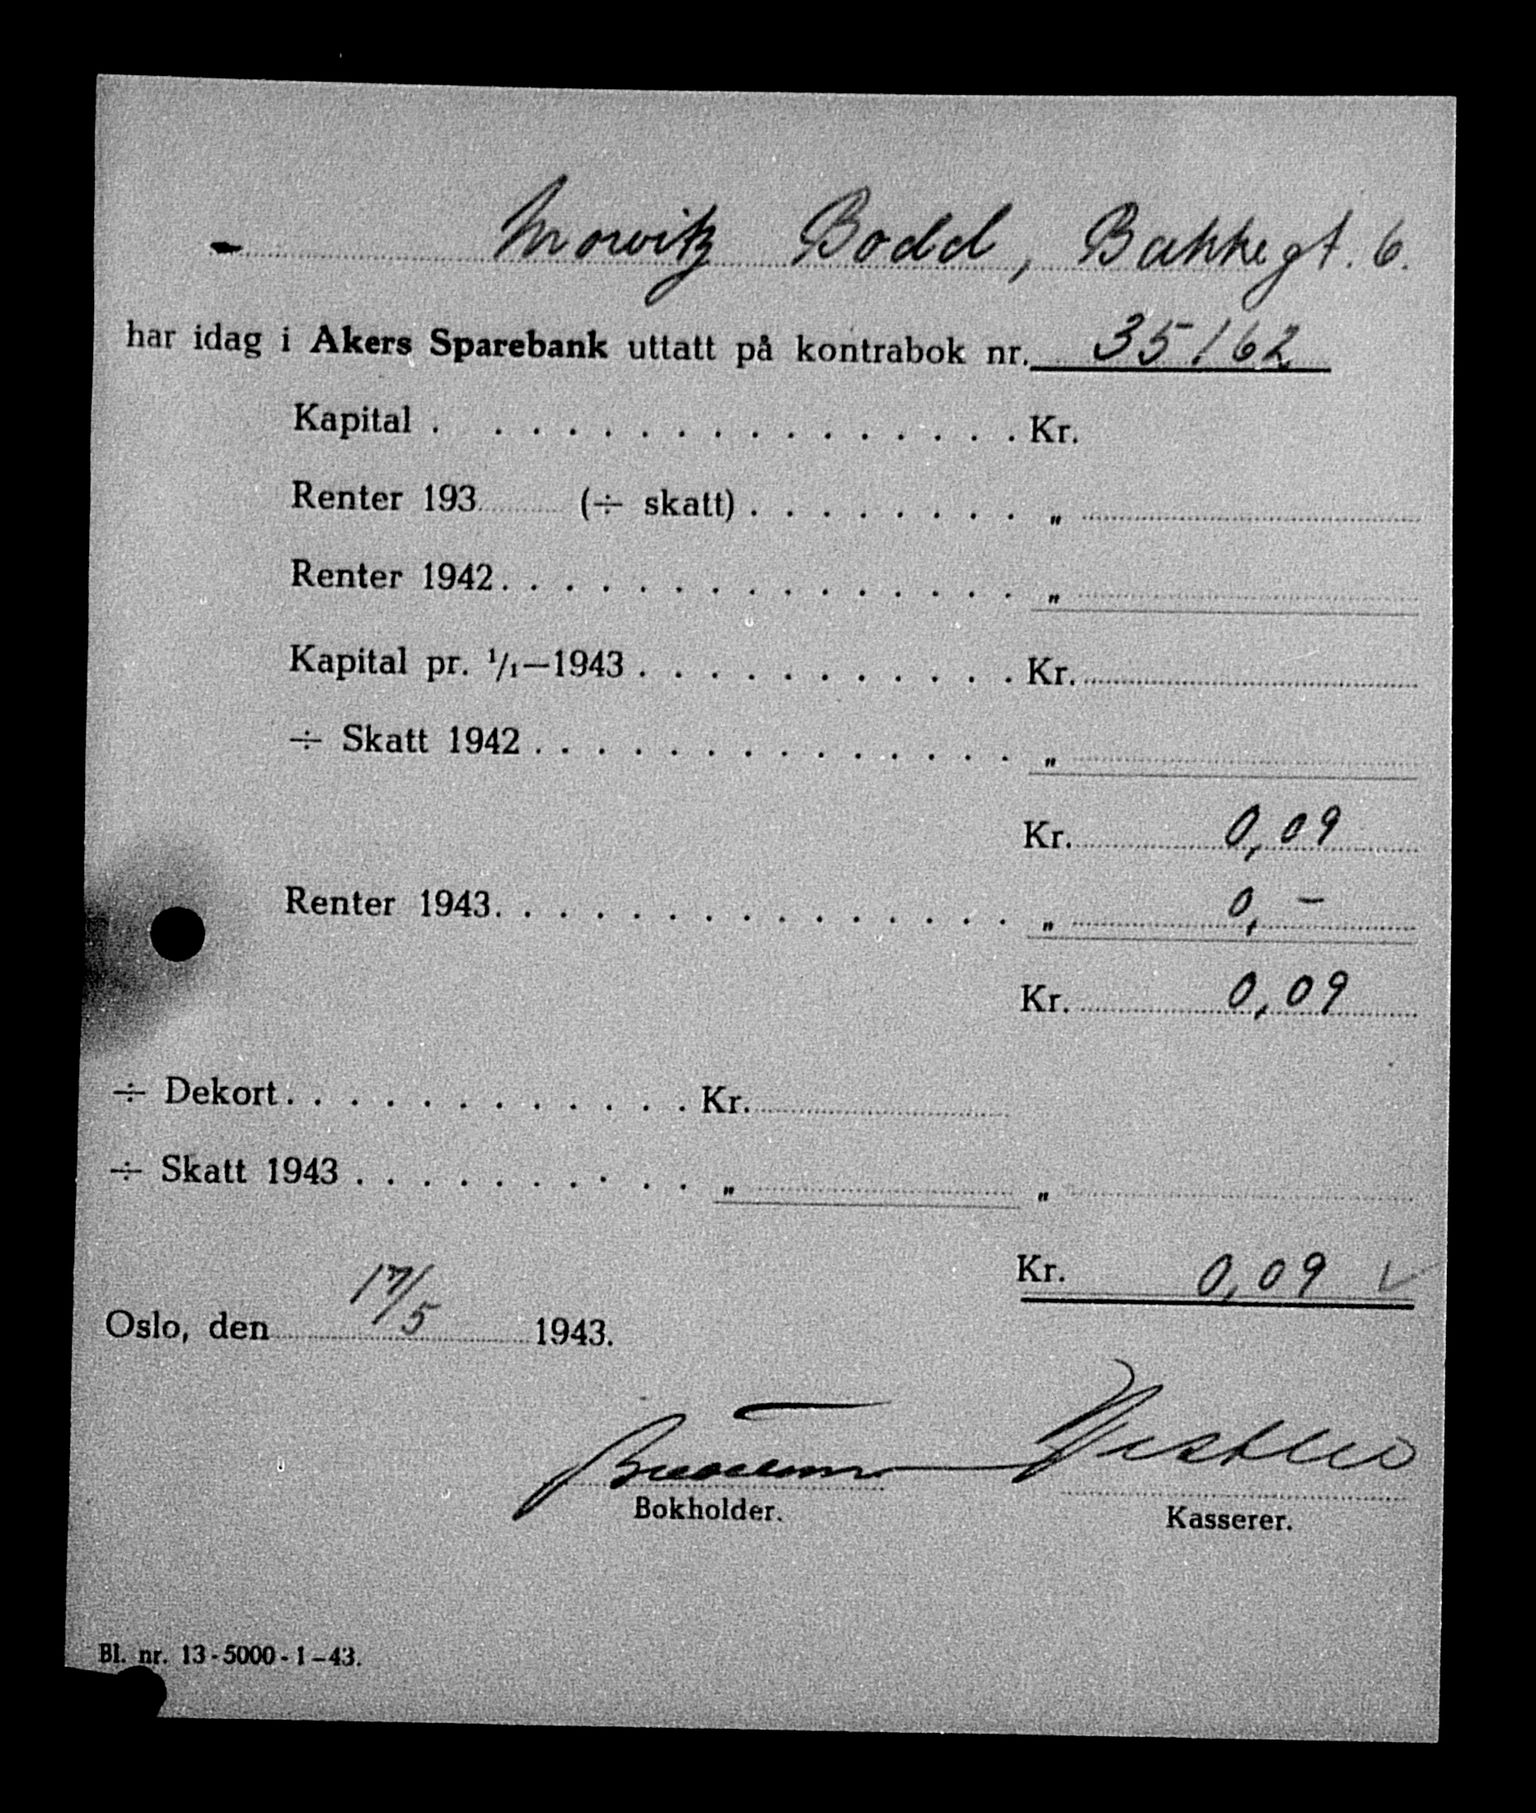 Mowitz Bodd, Bakkegt. 6.
har idag i Akers Sparebank uttatt på kontrabok nr. 35162
Kapital . . . . . . . . . . . . . . . . Kr.
Renter 193 (÷ skatt) . . . . . . . . "
Renter 1942 . . . . . . . . . . . . . . . "
Kapital pr. 1/1—1943 . . . . . . . . . . . Kr.
÷ Skatt 1942 . . . . . . . . . . . . . . "
Kr. 0,09
Renter 1943 . . . . . . . . . . . . . . . " 0,–
Kr. 0,09
÷ Dekort . . . . . . . . . . . . Kr.
÷ Skatt 1943 . . . . . . . . . . " "
Kr. 0,09 ✓
Oslo, den 17/5 1943.
Bokholder. Kasserer.
Bl. nr. 13-5000-1-43.